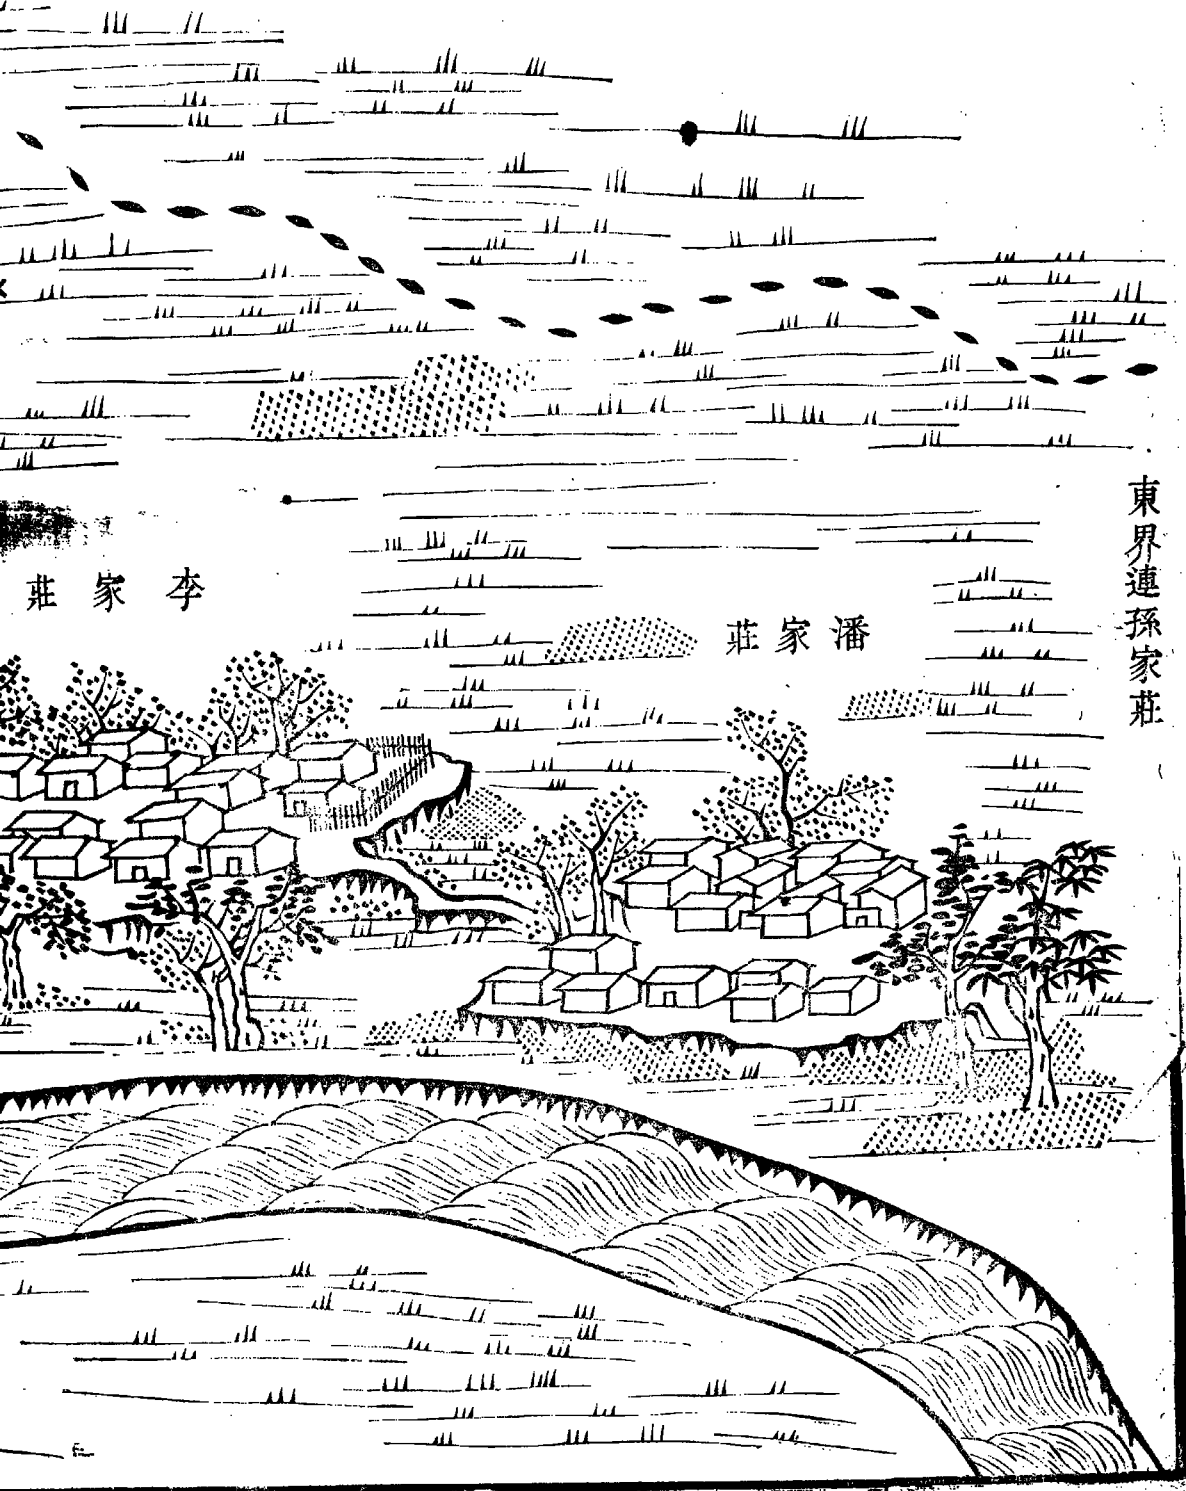 東界連孫家莊
潘家莊
李家莊